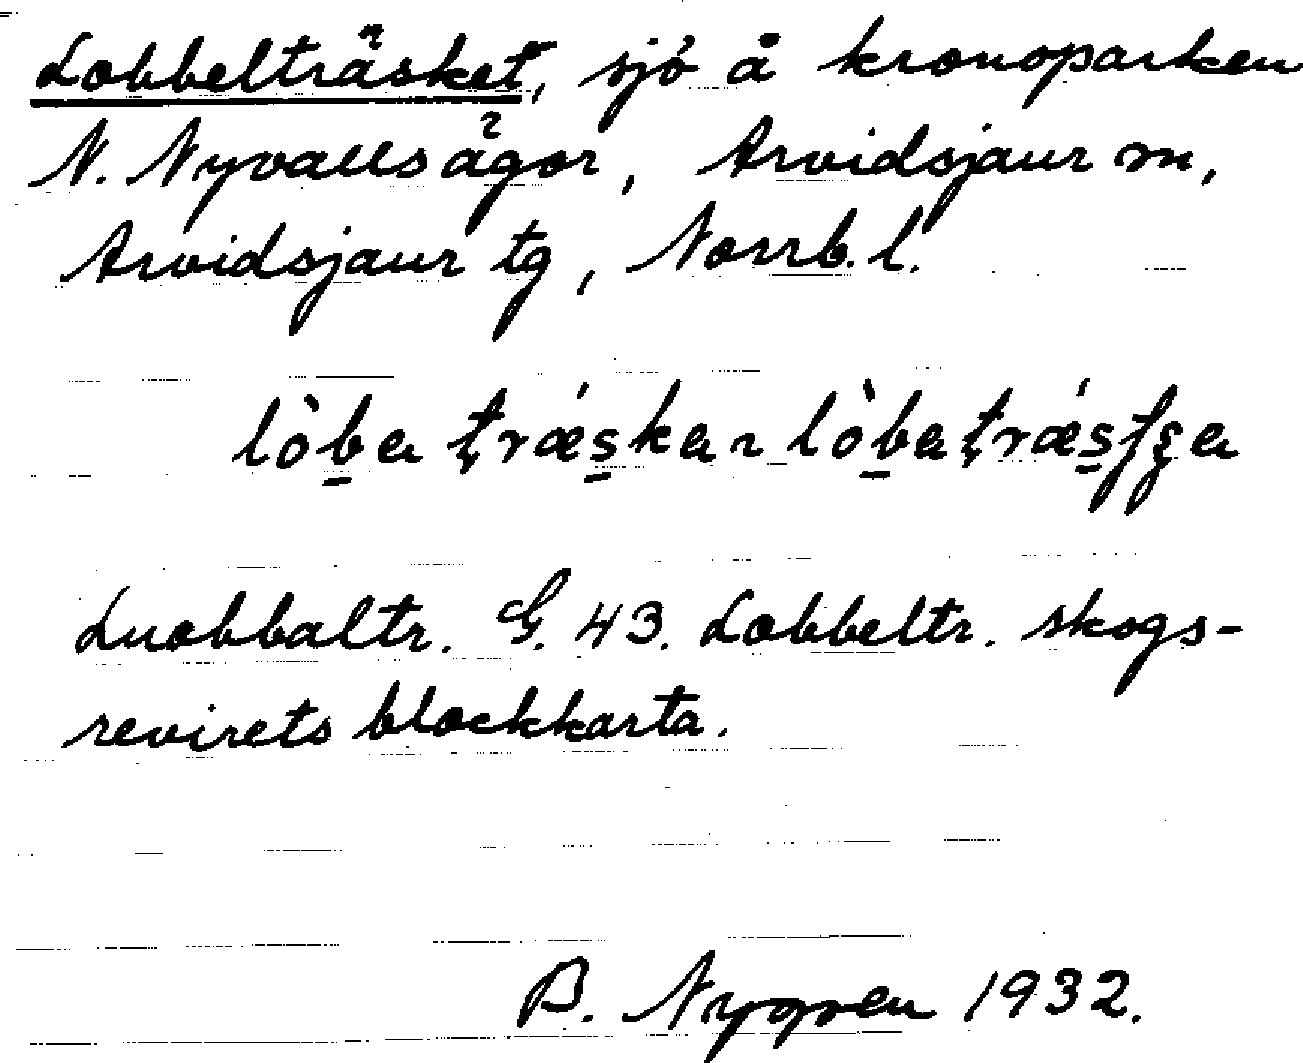 Lobbelträsket, sjö å kronoparken
N. Nyvallsägor, Arvidsjaur sn,
Arvidsjaur tg, Norrb. l.
Luobbaltr. G. 43. Lobbeltr. skogs-
revirets blockkarta.
B. Nygren 1932.